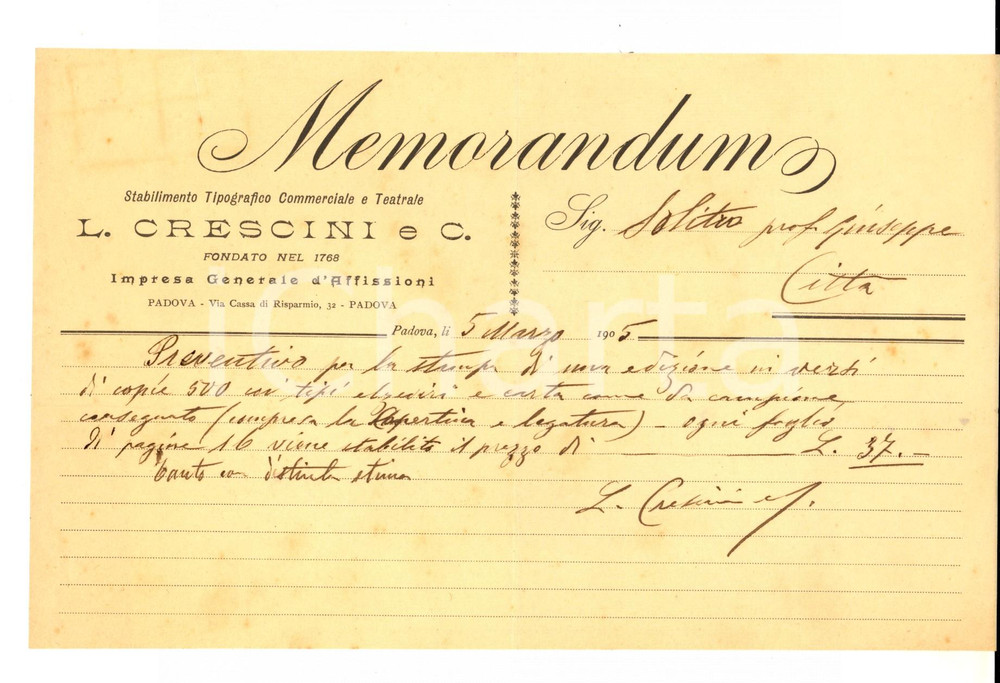 Memorandum
Stabilimento Tipografico Commerciale e Teatrale
L. CRESCINI e C.
FONDATO NEL 1768
Impresa Generale d'Affissioni
PADOVA - Via Cassa di Risparmio, 32 - PADOVA
Sig. Solitro prof. Giuseppe
Città
Padova, li 5 Marzo 1905.
Preventivo per la stampa di una edizione in versi
di copie 500 coi tipi elzeviri e carta come da campione
consegnato (compresa la copertina e legatura) - ogni foglio
di pagine 16 viene stabilito il prezzo di L. 37.-
Tanto con distinta stima
L. Crescini e C.
iCharta